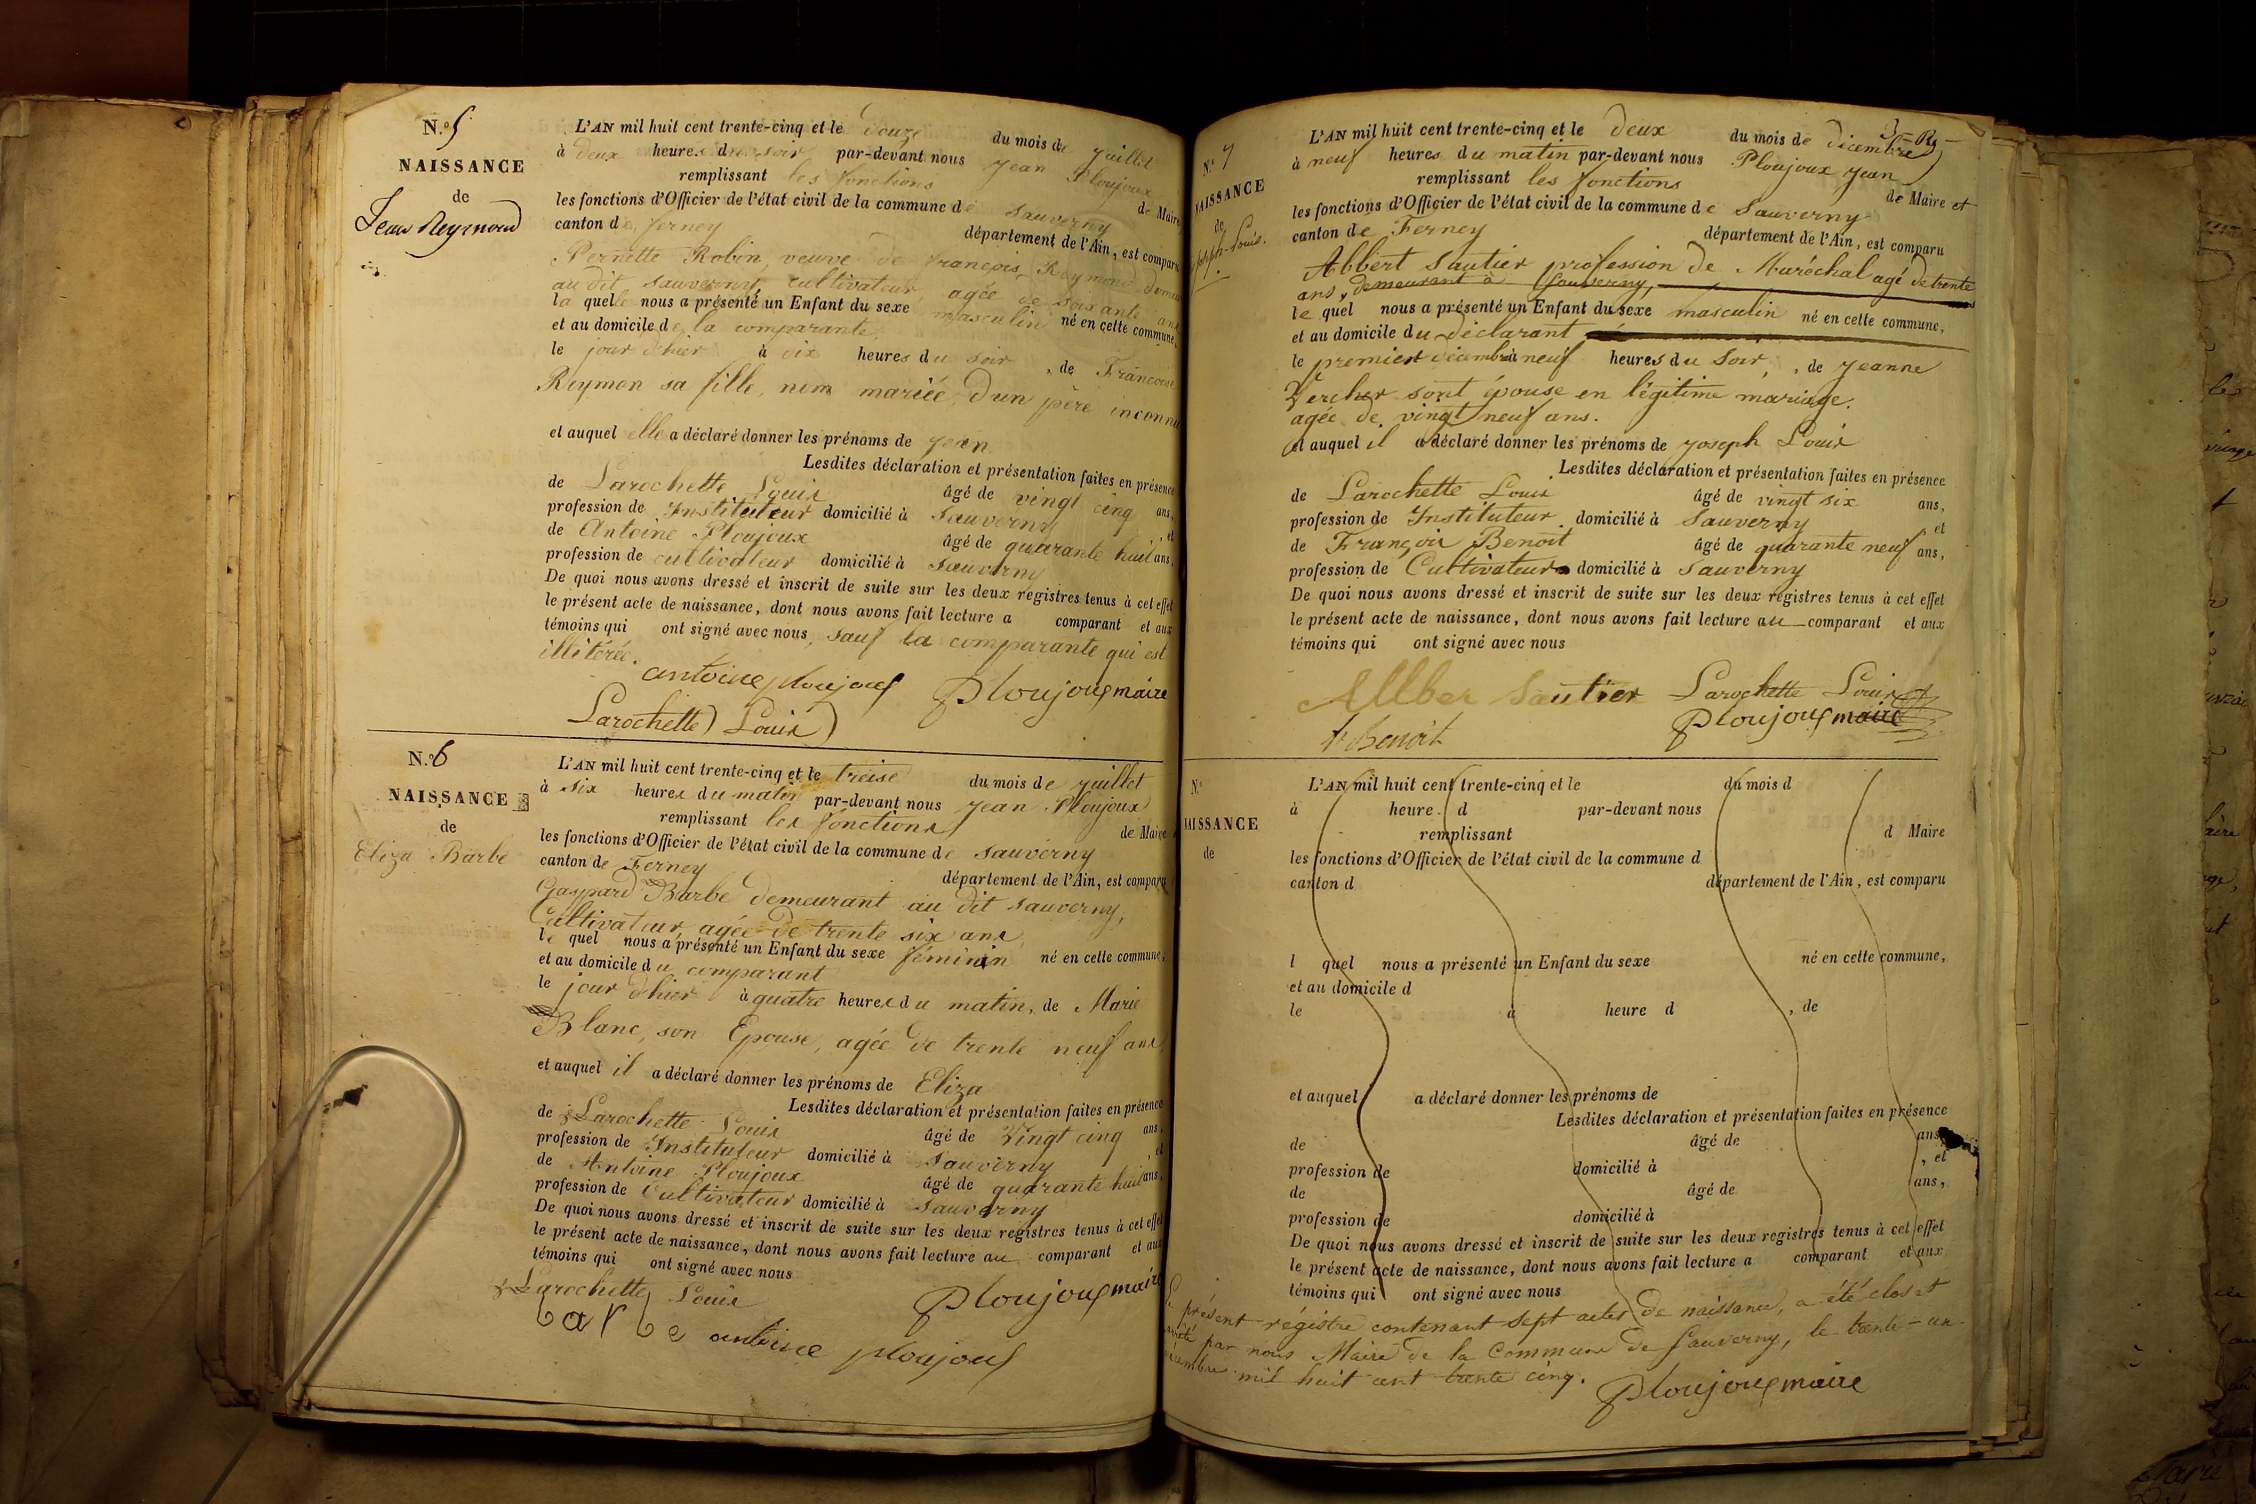 N.º 5
NAISSANCE
de
Jean Reymond
L'AN mil huit cent trente-cinq et le douze du mois de juillet
à deux heures du soir par-devant nous Jean Ploujoux
remplissant les fonctions de Maire
les fonctions d'Officier de l'état civil de la commune de Sauverny
canton de ferney département de l'Ain, est comparu
Pernette Robin, veuve de françois Reymond
au dit sauverny, cultivateur agée de soixante ans
la quelle nous a présenté un Enfant du sexe masculin né en cette commune,
et au domicile de la comparante
le jour d'hier à dix heures du soir, de Francoise
Reymon sa fille, non mariée, d'un père inconnu
et auquel elle a déclaré donner les prénoms de jean
Lesdites déclaration et présentation faites en présence
de Larochette Louis âgé de vingt cinq ans,
profession de Instituteur domicilié à Sauverny, et
de Antoine Ploujoux âgé de quarante huit ans,
profession de cultivateur domicilié à sauverny
De quoi nous avons dressé et inscrit de suite sur les deux registres tenus à cet effet
le présent acte de naissance, dont nous avons fait lecture a comparant et aux
témoins qui ont signé avec nous, sauf la comparante qui est
illitérée.
antoine ploujoux Ploujoux maire
Larochette Louis
N.º 6
NAISSANCE
de
Eliza Barbe
L'AN mil huit cent trente-cinq et le treise du mois de juillet
à six heures du matin par-devant nous Jean Ploujoux
remplissant les fonctions de Maire
les fonctions d'Officier de l'état civil de la commune de sauverny
canton de Ferney département de l'Ain, est comparu
Gaspard Barbe demeurant au dit sauverny,
Cultivateur agée de trente six ans
le quel nous a présenté un Enfant du sexe féminin né en cette commune,
et au domicile du comparant
le jour d'hier à quatre heures du matin, de Marie
Blanc, son Epouse, agée de trente neuf ans
et auquel il a déclaré donner les prénoms de Eliza
Lesdites déclaration et présentation faites en présence
de Larochette Louis âgé de Vingt cinq ans,
profession de Instituteur domicilié à Sauverny, et
de Antoine Ploujoux âgé de quarante huit ans,
profession de Cultivateur domicilié à Sauverny
De quoi nous avons dressé et inscrit de suite sur les deux registres tenus à cet effet
le présent acte de naissance, dont nous avons fait lecture au comparant et aux
témoins qui ont signé avec nous
Larochette Louis Ploujoux maire
barbe antoine ploujoux
N.º 7
NAISSANCE
de
Joseph-Louis.
L'AN mil huit cent trente-cinq et le deux du mois de décembre
à neuf heures du matin par-devant nous Ploujoux Jean
remplissant les fonctions de Maire et
les fonctions d'Officier de l'état civil de la commune de Sauverny
canton de Ferney département de l'Ain, est comparu
Abbert Sautier profession de Maréchal agé de trente
ans, demeurant à Sauverny,
le quel nous a présenté un Enfant du sexe masculin né en cette commune,
et au domicile du déclarant
le premier décembre à neuf heures du soir, de Jeanne
Vercher sont épouse en légitime mariage.
agée de vingt neuf ans.
et auquel il a déclaré donner les prénoms de Joseph Louis
Lesdites déclaration et présentation faites en présence
de Larochette Louis âgé de vingt six ans,
profession de Instituteur domicilié à Sauverny et
de François Benoit âgé de quarante neuf ans,
profession de Cultivateur domicilié à Sauverny
De quoi nous avons dressé et inscrit de suite sur les deux registres tenus à cet effet
le présent acte de naissance, dont nous avons fait lecture au comparant et aux
témoins qui ont signé avec nous
Allber Sautier Larochette Louis
Ploujoux maire
fr Benoit
N.º
NAISSANCE
de
L'AN mil huit cent trente-cinq et le du mois d
à heure d par-devant nous
remplissant d Maire
les fonctions d'Officier de l'état civil de la commune d
canton d département de l'Ain, est comparu
l quel nous a présenté un Enfant du sexe né en cette commune,
et au domicile d
le à heure d , de
et auquel a déclaré donner les prénoms de
Lesdites déclaration et présentation faites en présence
de âgé de ans,
profession de domicilié à , et
de âgé de ans,
profession de domicilié à
De quoi nous avons dressé et inscrit de suite sur les deux registres tenus à cet effet
le présent acte de naissance, dont nous avons fait lecture a comparant et aux
témoins qui ont signé avec nous
Le présent régistre contenant sept actes de naissance, a été clos et
arrêté par nous Maire de la Commune de Sauverny, le trente-un
décembre mil huit cent trente cinq.
Ploujoux maire